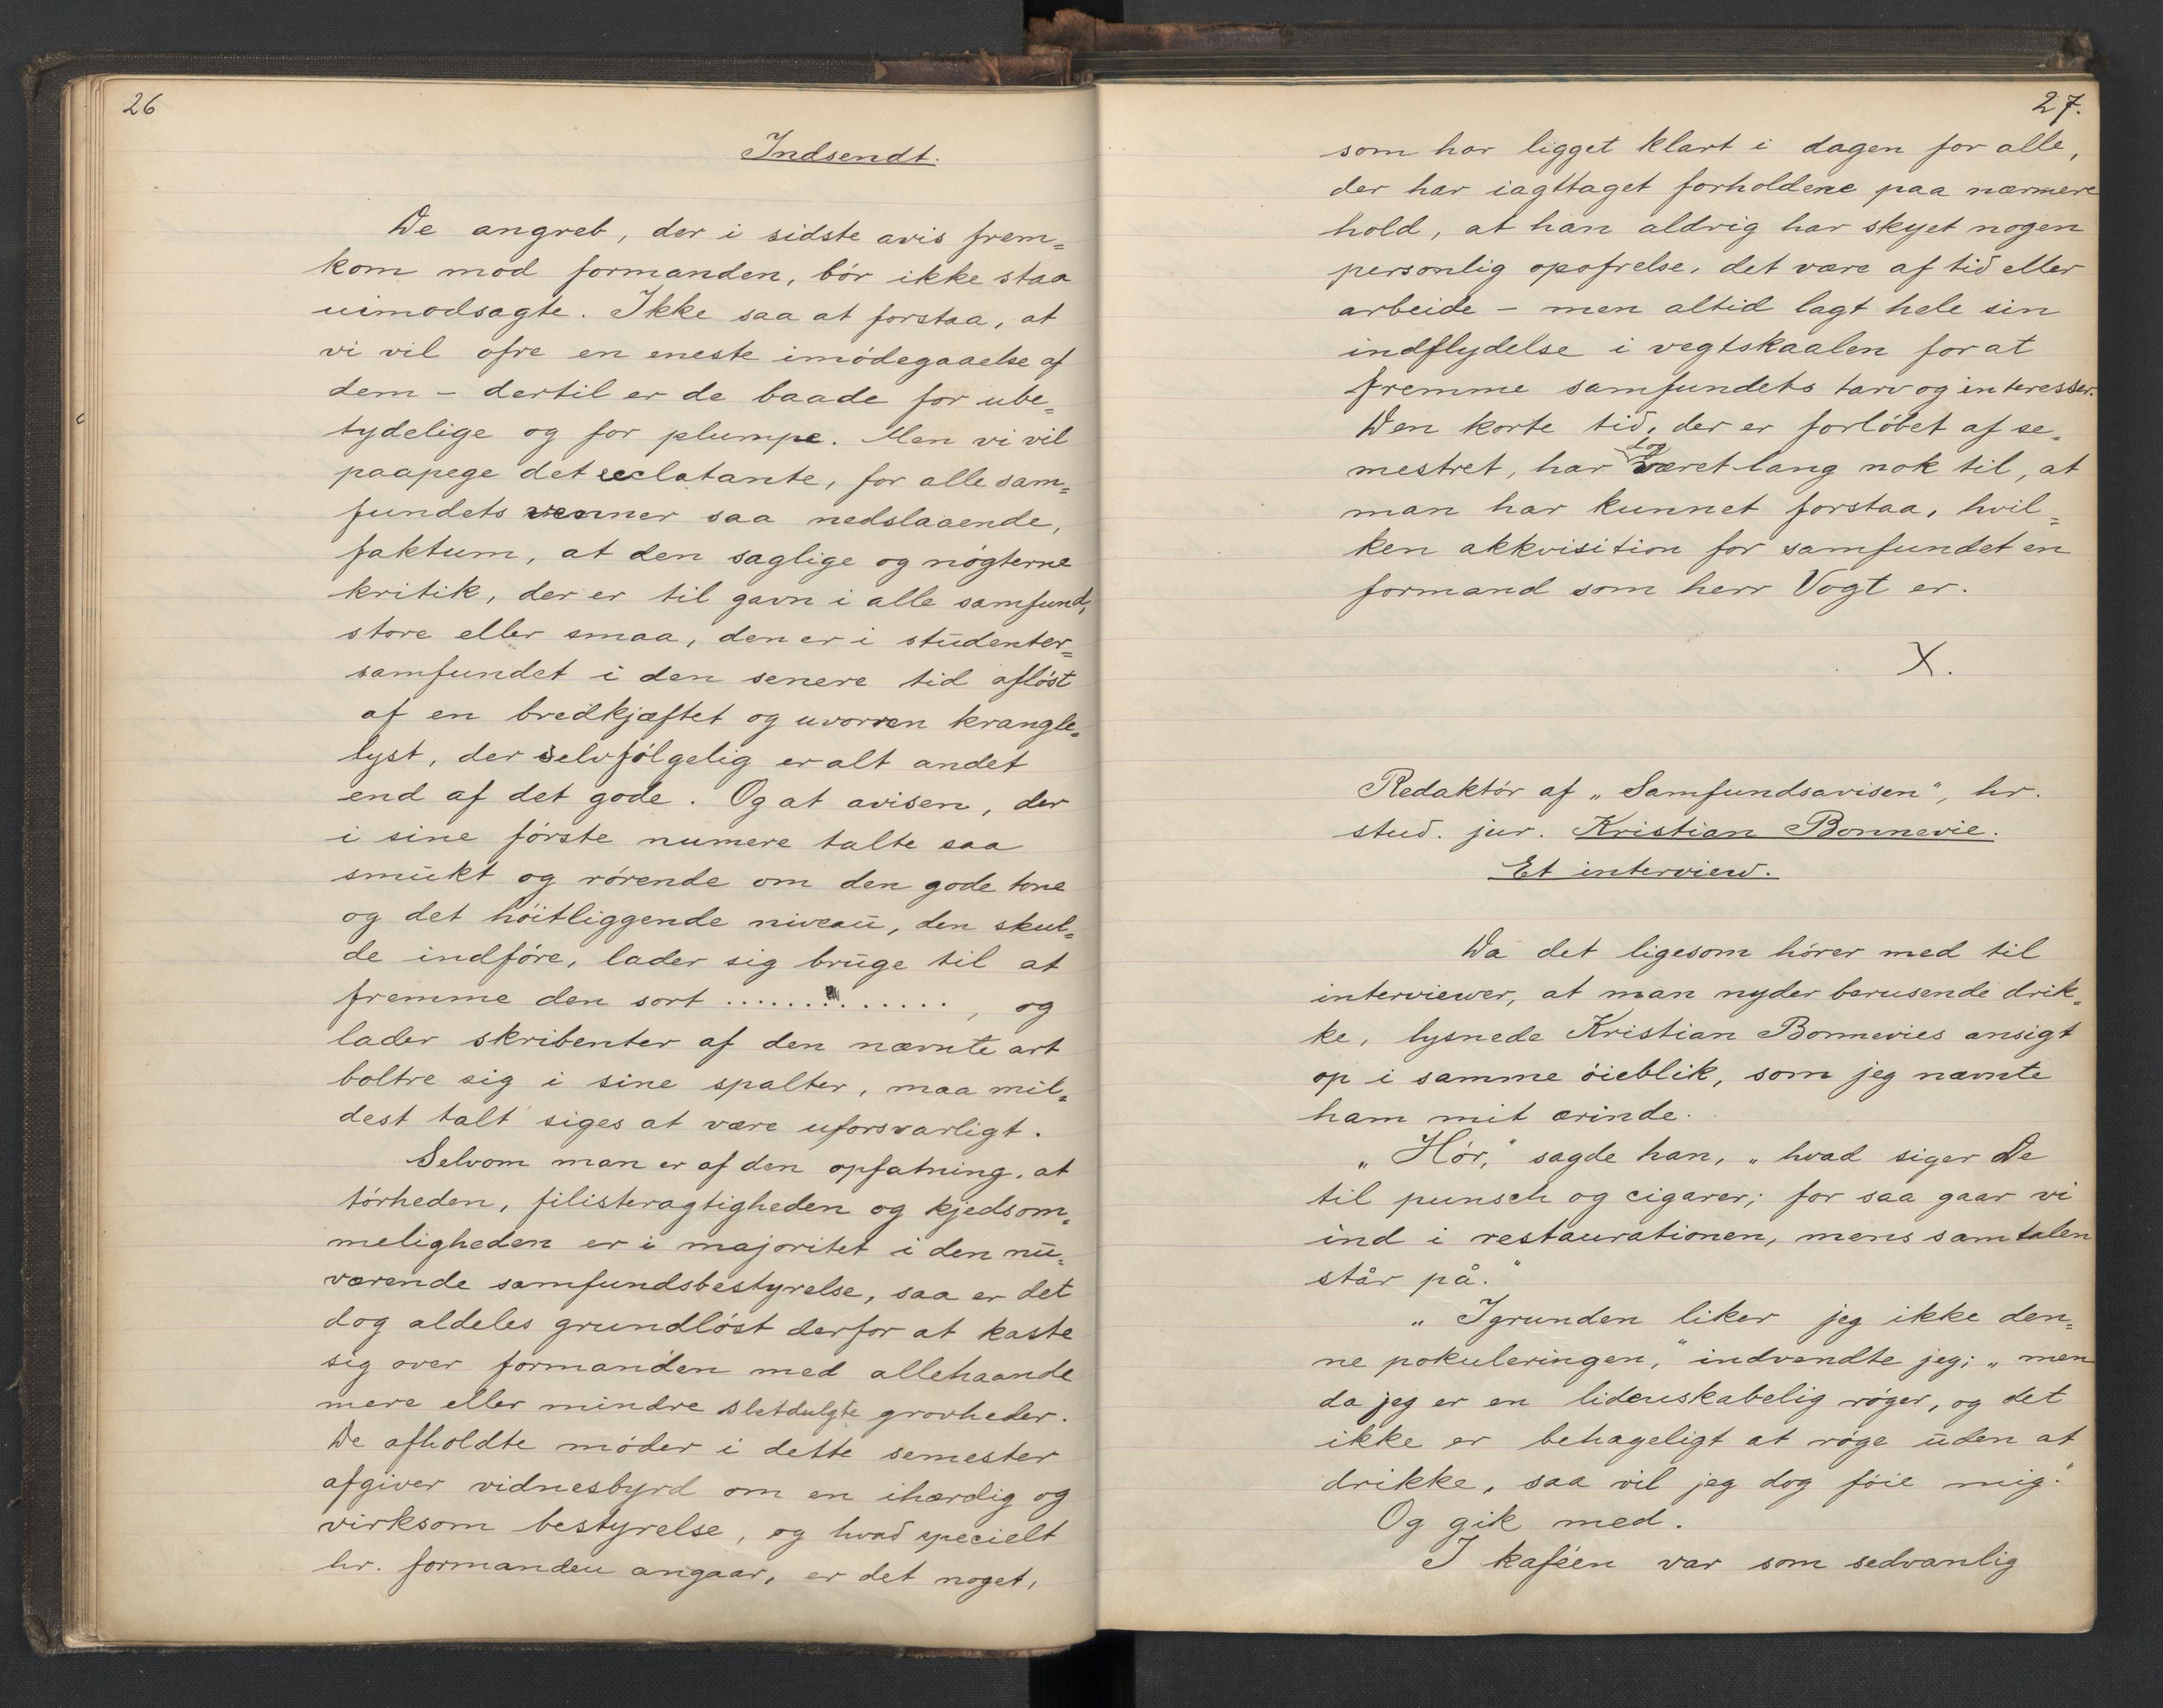 26
Indsendt.
De angreb, der i sidste avis frem=
kom mod formanden, bór ikke staa
uimodsagte. Ikke saa at forstaa, at
vi vil ofre en eneste imódegaaelse af
dem - dertil er de baade for ube=
tydelige og for plumpe. Men vi vil
paapege det eclatante, for alle sam=
fundets venner saa nedslaaende,
faktum, at den saglige og nógterne
kritik, der er til gavn i alle samfund,
store eller smaa, den er i studenter=
samfundet i den senere tid aflóst
af en bredkjæftet og uvorren krangle=
lyst, der selvfólgelig er alt andet
end af det gode. Og at avisen, der
i sine fórste numere talte saa
smukt og rórende om den gode tone
og det hóitliggende niveau, den skul=
de indfóre, lader sig bruge til at
fremme den sort .............., og
lader skribenter af den nævnte art
boltre sig i sine spalter, maa mil=
dest talt siges at være uforsvarligt.
Selvom man er af den opfatning, at
tórheden, filisteragtigheden og kjedsom=
meligheden er i majoritet i den nu=
værende samfundsbestyrelse, saa er det
dog aldeles grundlóst derfor at kaste
sig over formanden med allehaande
mere eller mindre sletdulgte grovheder.
De afholdte móder i dette semester
afgiver vidnesbyrd om en ihærdig og
virksom bestyrelse, og hvad specielt
hr. formanden angaar, er det noget,
27.
som har ligget klart i dagen for alle,
der har iagttaget forholdene paa nærmere
hold, at han aldrig har skyet nogen
personlig opofrelse, det være af tid eller
arbeide - men altid lagt hele sin
indflydelse i vegtskaalen for at
fremme samfundets tarv og interesser.
Den korte tid, der er forlóbet af se=
mestret, har dog været lang nok til, at
man har kunnet forstaa, hvil=
ken akkvisition for samfundet en
formand som herr Vogt er.
X.
Redaktór af „Samfundsavisen", hr.
stud. jur. Kristian Bonnevie.
Et interview.
Da det ligesom hórer med til
interviewer, at man nyder berusende drik=
ke, lysnede Kristian Bonnevies ansigt
op i samme óieblik, som jeg nævnte
ham mit ærinde.
„Hór," sagde han, „hvad siger De
til punsch og cigarer; for saa gaar vi
ind i restaurationen, mens samtalen
står på."
„Igrunden liker jeg ikke den=
ne pokuleringen," indvendte jeg; „men
da jeg er en lidenskabelig róger, og det
ikke er behageligt at róge uden at
drikke, saa vil jeg dog fóie mig."
Og gik med.
I kaféen var som sedvanlig